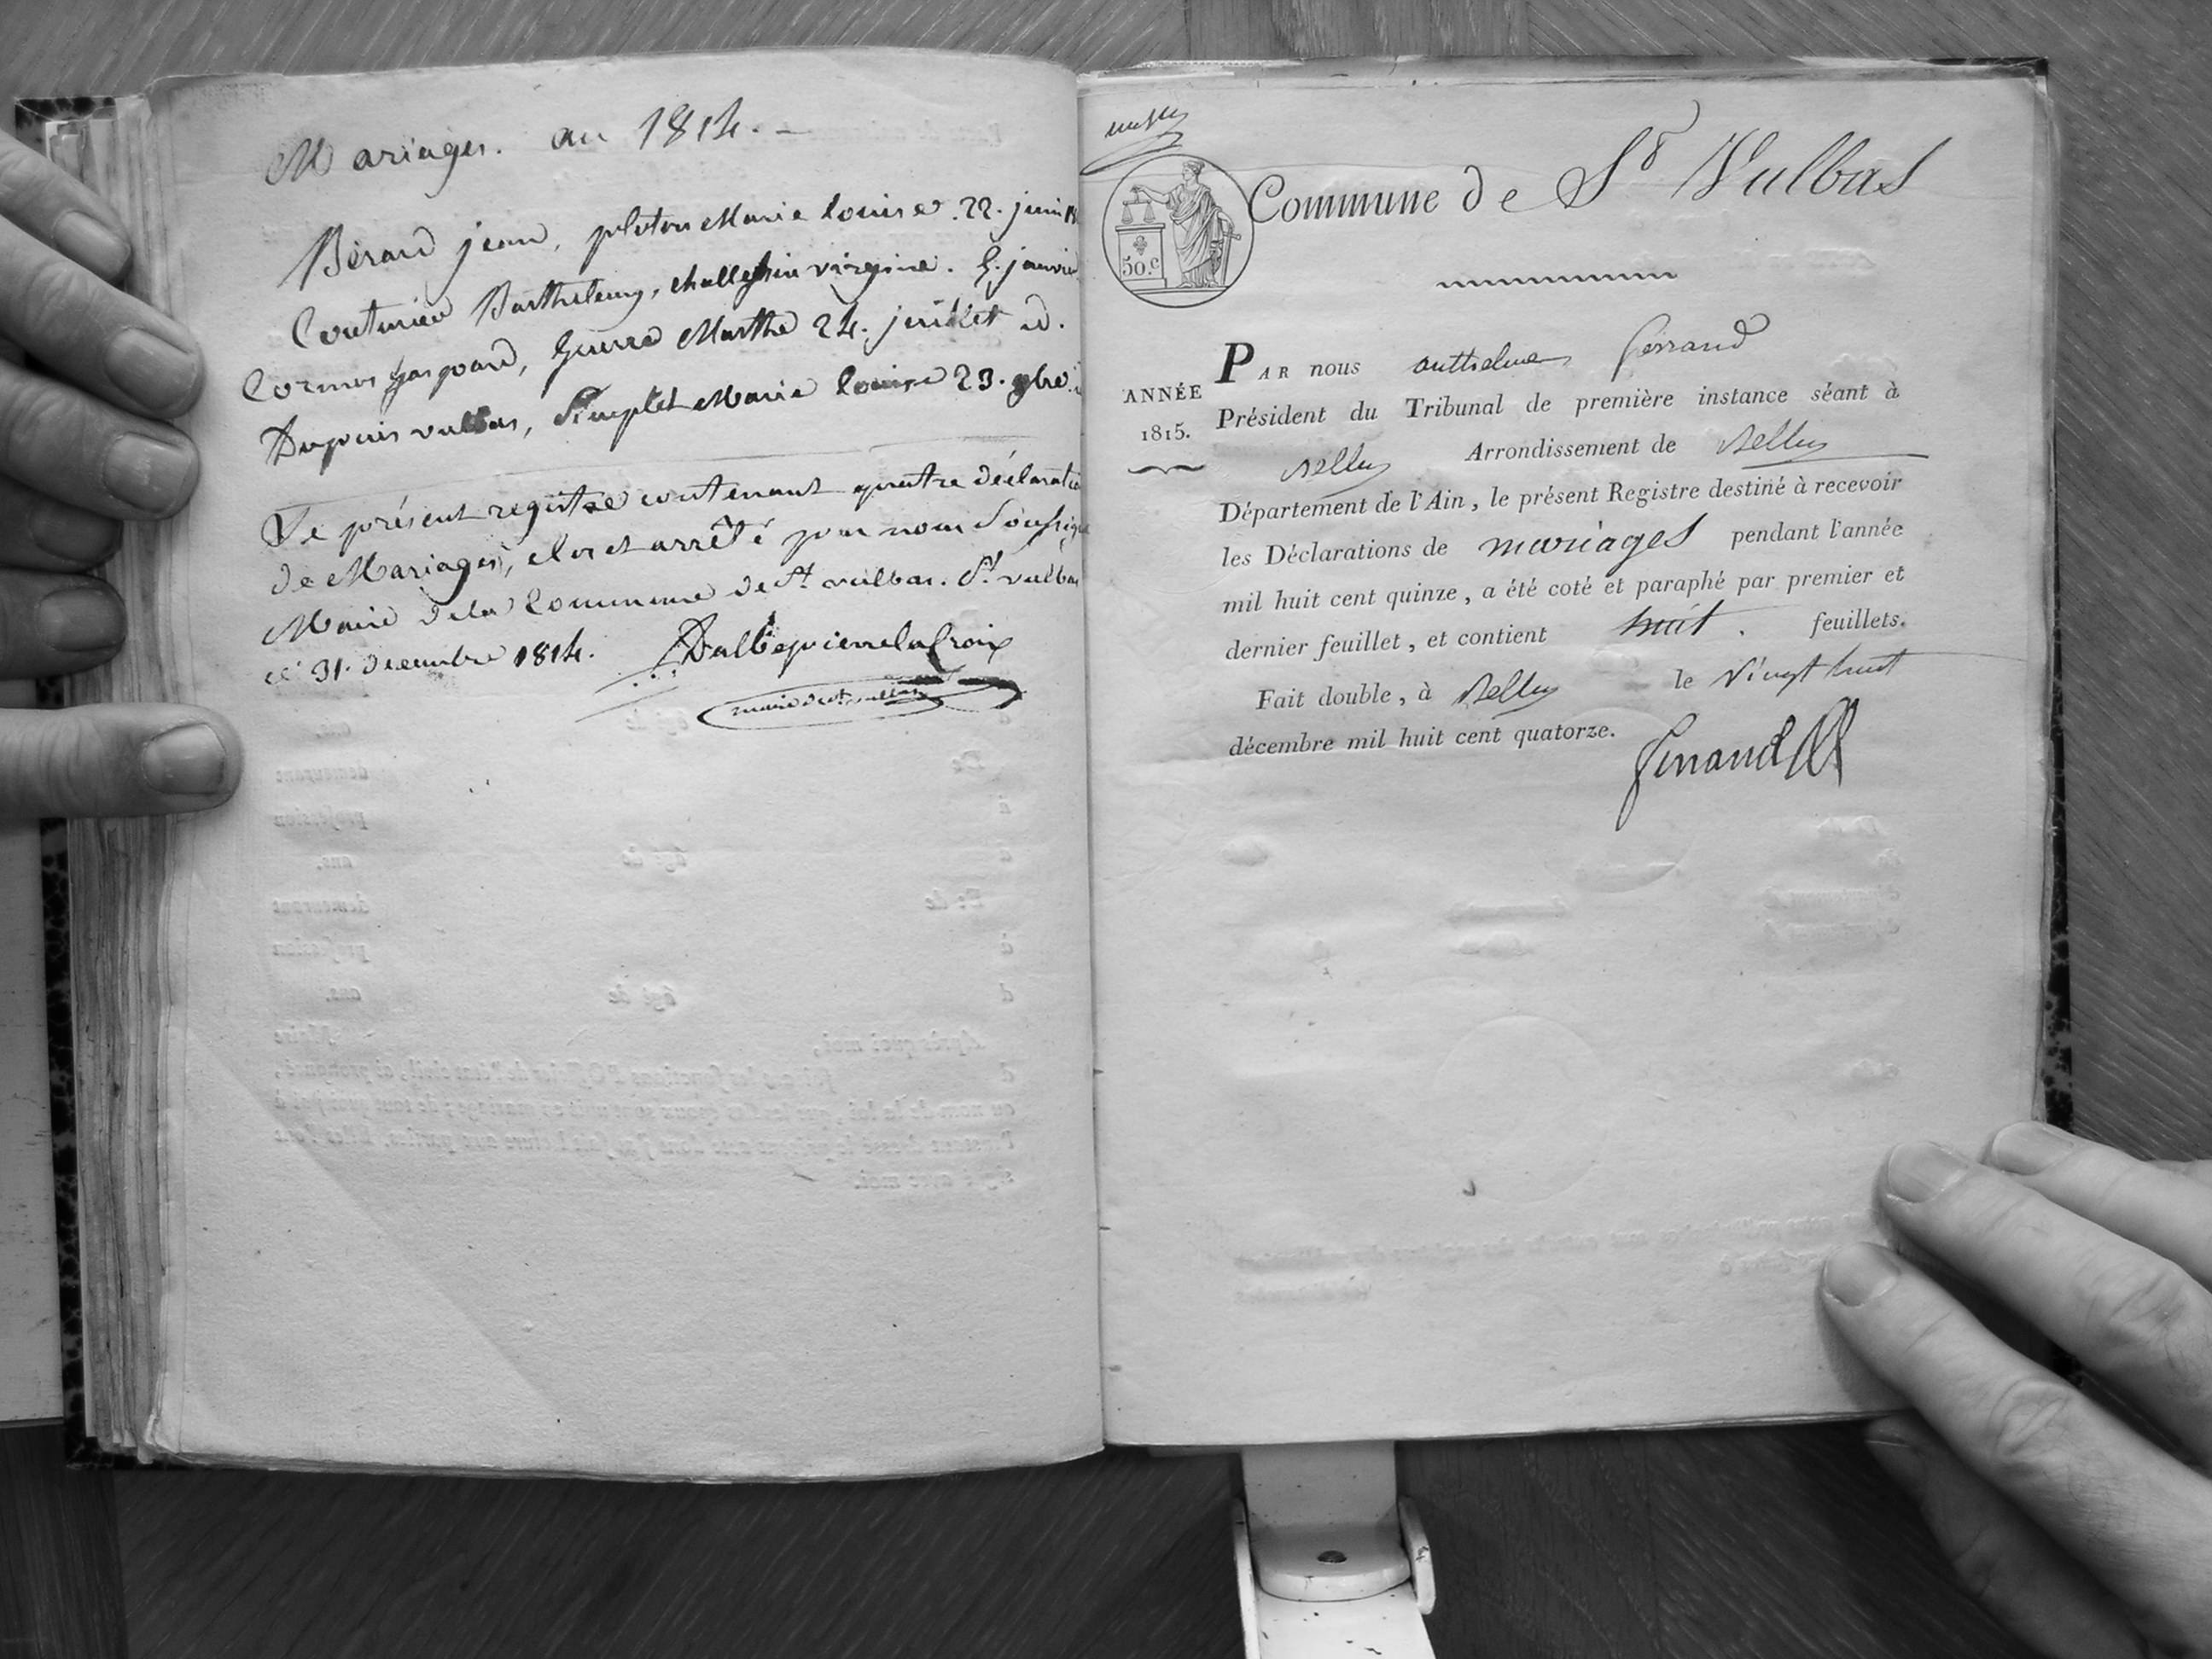 Mariages. an 1814. -
Bérard jean, peloton Marie louise. 22. juin
Couturier Barthelemy, virginie. janvier
Cormor gaspard, Guerre Marthe 24. juillet id.
Dupuis vulbas, Simplet Marie louise 23. 9bre.
Le présent registre contenant quatre déclaratio
de Mariages, clos et arrêté par nous Soussig
Maire de la Commune de St. vulbas. St. vulbas
ce 31. decembre 1814. Dalbepierre lacroix
maire de st. vulbas
50.c
Commune de St Vulbas
ANNÉE
1815.
PAR nous anthelme ferrand
Président du Tribunal de première instance séant à
Belley Arrondissement de Belley
Département de l'Ain, le présent Registre destiné à recevoir
les Déclarations de mariages pendant l'année
mil huit cent quinze, a été coté et paraphé par premier et
dernier feuillet, et contient huit . feuillets.
Fait double, à Belley le vingt huit
décembre mil huit cent quatorze.
ferrand